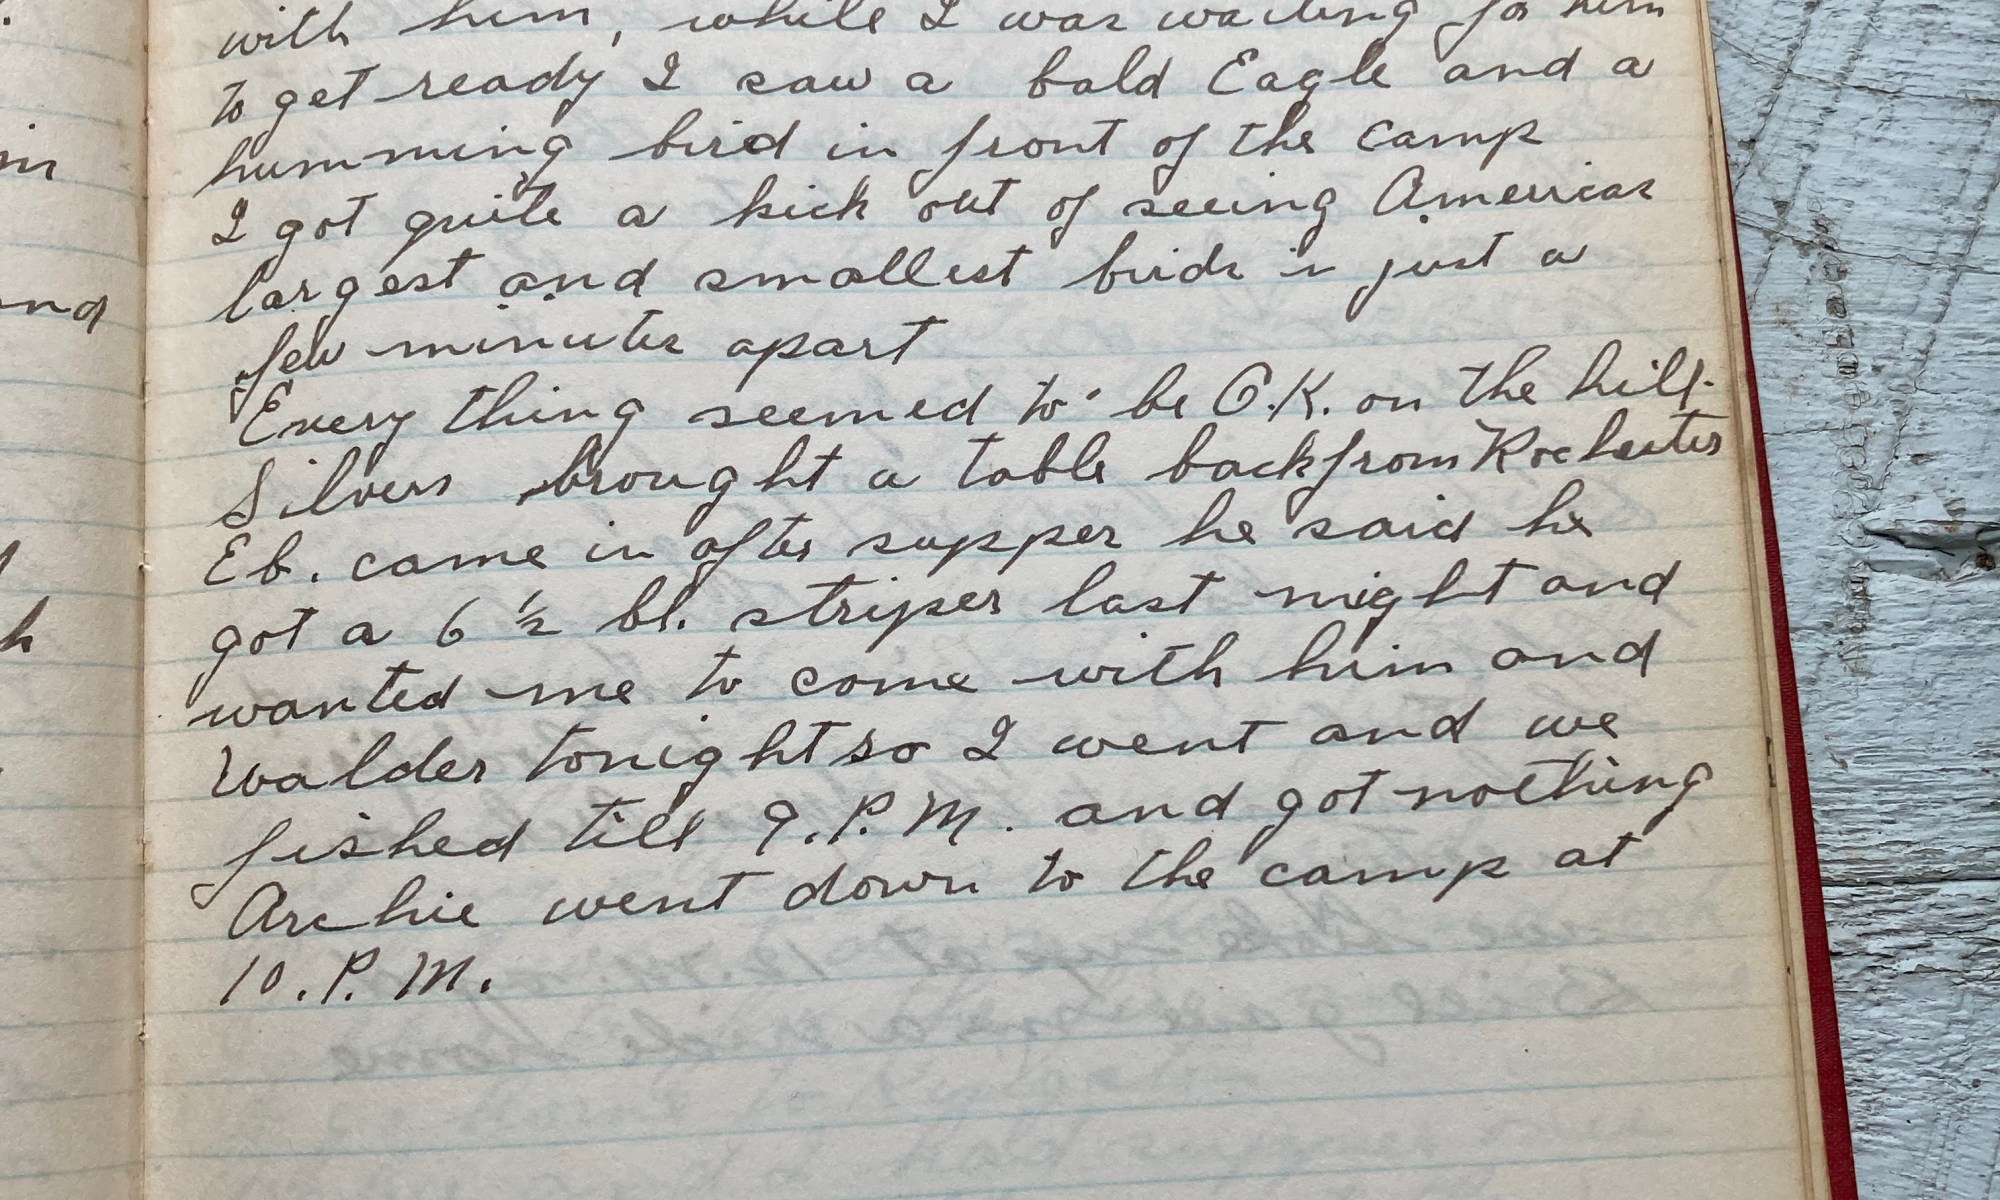 with him, while I was waiting for him
to get ready I saw a bald Eagle and a
humming bird in front of the camp
I got quite a kick out of seeing Americas
largest and smallest birds in just a
few minutes apart
Every thing seemed to be O.K. on the hill.
Silvers brought a table back from Rochester
Eb. came in after supper he said he
got a 6 ½ bl. striper last night and
wanted me to come with him and
Walder tonight so I went and we
fished till 9. P. M. and got nothing
Archie went down to the camp at
10. P. M.